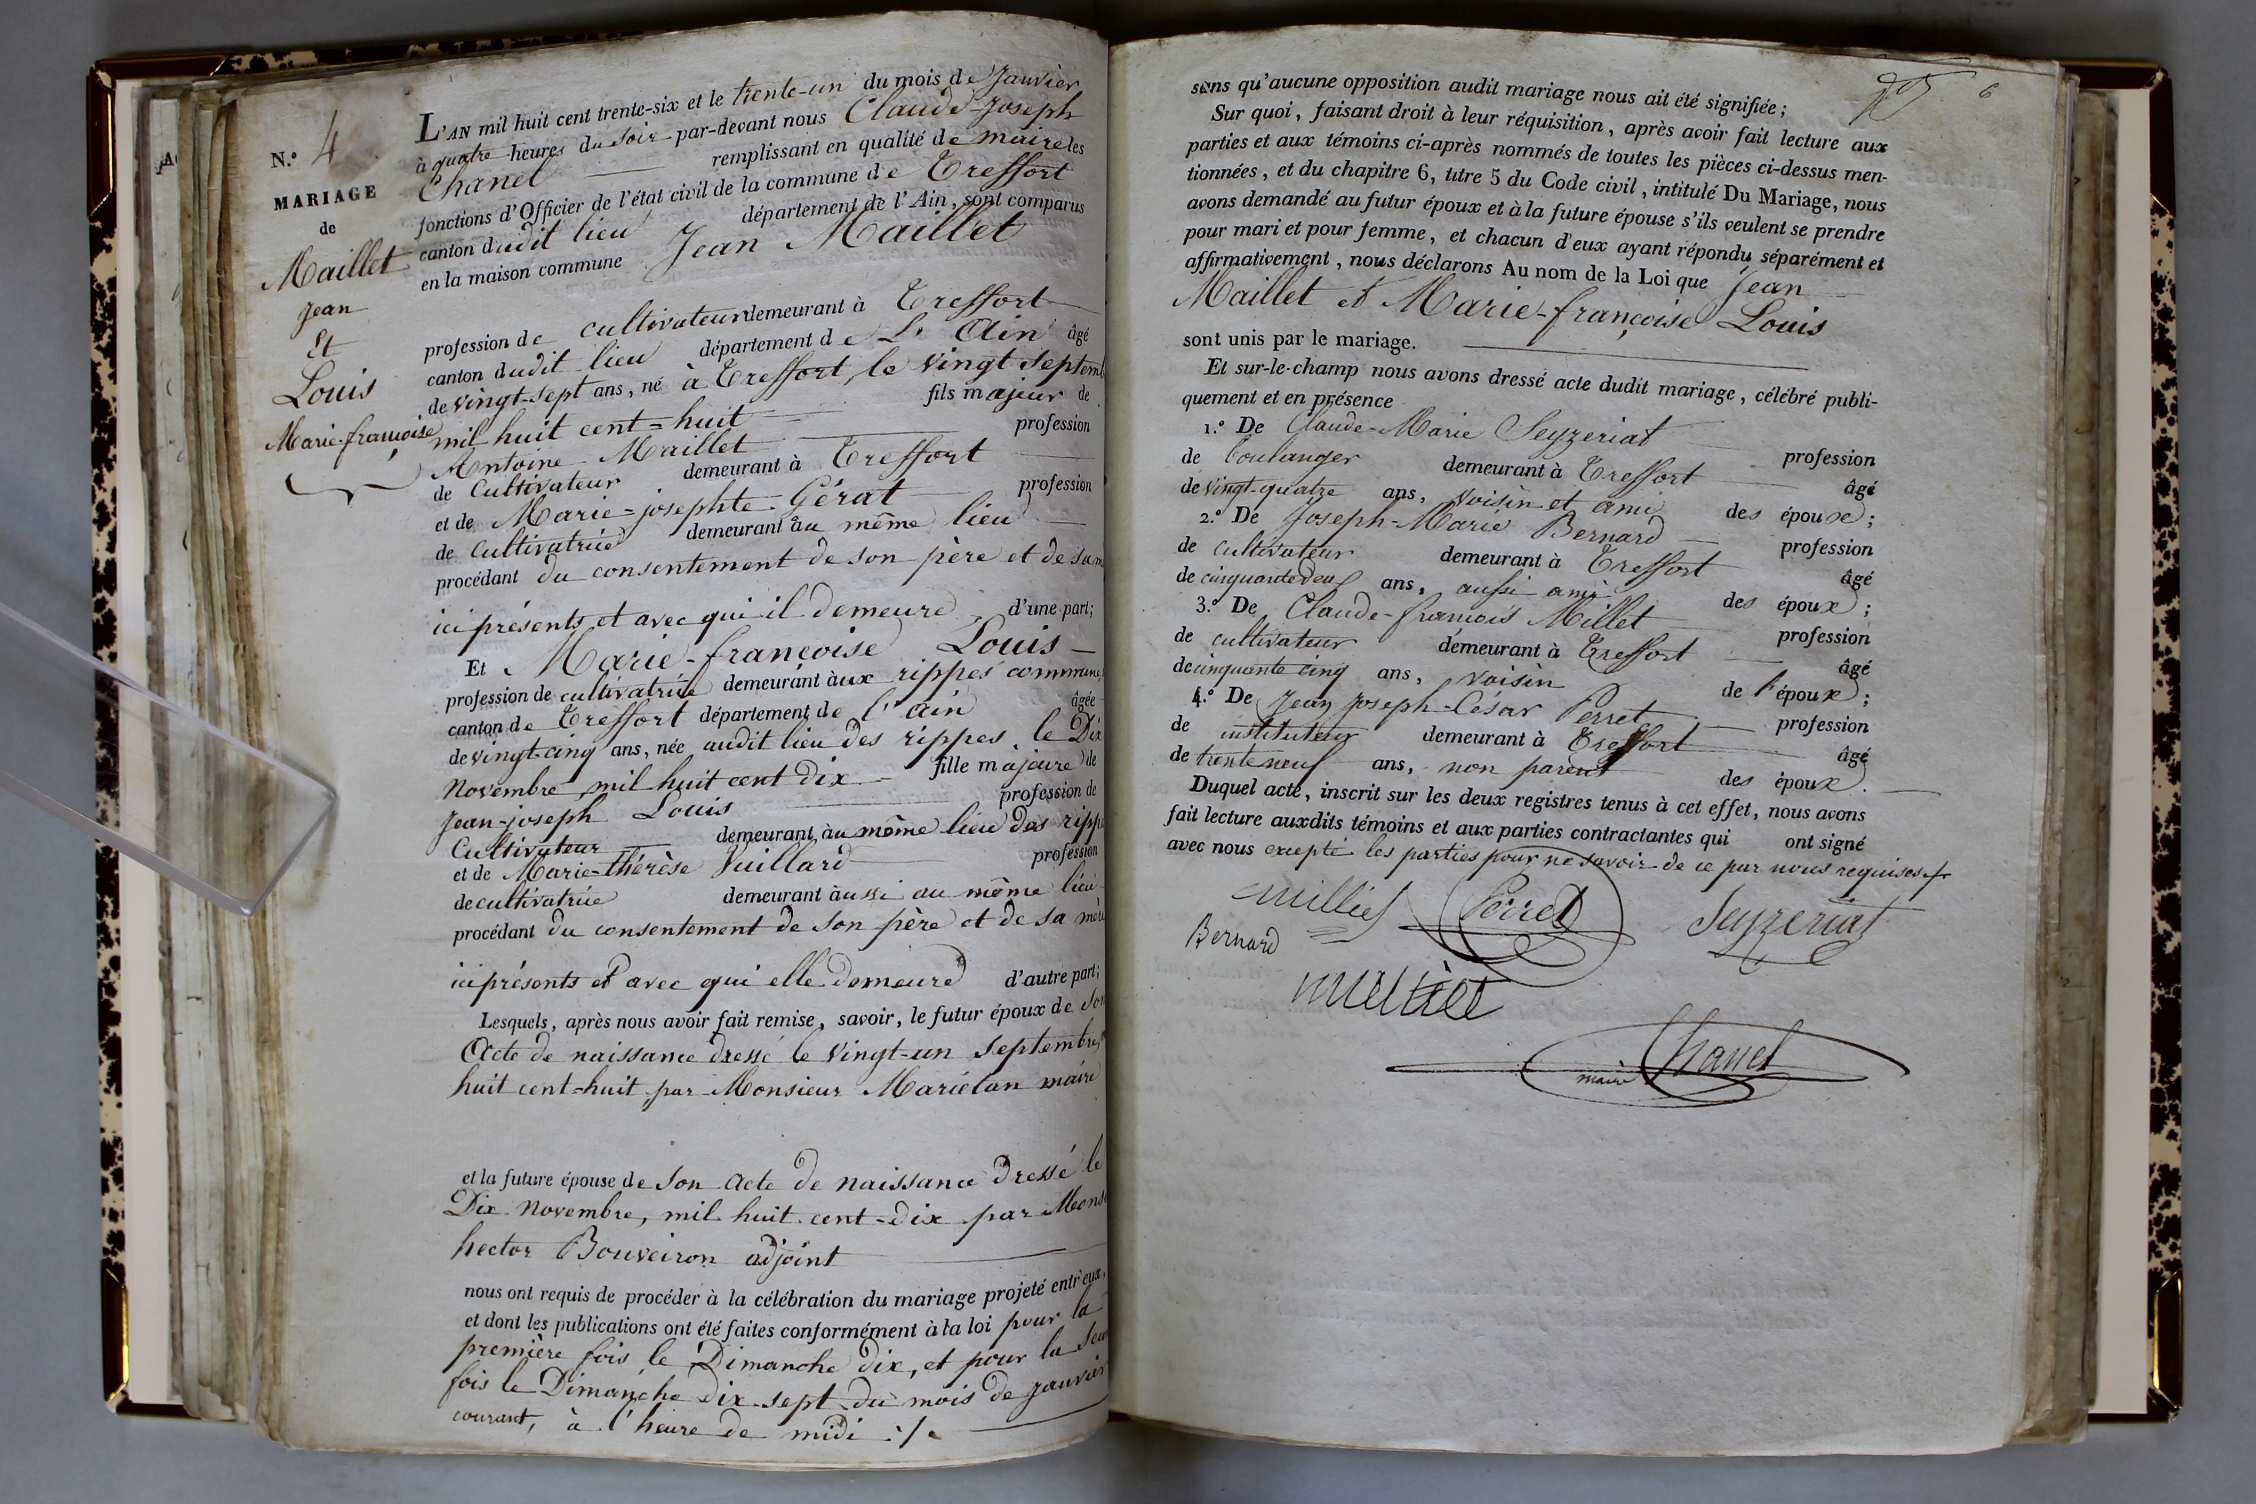 N.º 4
MARIAGE
de
Maillet
Jean
Et
Louis
Marie-françoise
L'AN mil huit cent trente-six et le trente-un du mois de Janvier
à quatre heures du soir par-devant nous Claude-Joseph
Chanel remplissant en qualité de maire les
fonctions d'Officier de l'état civil de la commune de Treffort
canton dudit lieu département de l'Ain, sont comparus
en la maison commune Jean Maillet
profession de cultivateur demeurant à Treffort
canton dudit lieu département de L'Ain âgé
de vingt-sept ans, né à Treffort, le vingt septemb
mil huit cent-huit fils majeur de
Antoine Maillet profession
de Cultivateur demeurant à Treffort
et de Marie-josephte Gérat profession
de Cultivatrice demeurant au même lieu
procédant du consentement de son père et de sa m
ici présents et avec qui il demeure d'une part;
Et Marie-françoise Louis
profession de cultivatrice demeurant àux rippes commune
canton de Treffort département de l'Ain âgée
de vingt-cinq ans, née audit lieu des rippes, le Dix
Novembre mil huit cent dix fille majeure de
Jean-joseph Louis profession de
Cultivateur demeurant àu même lieu des ripp
et de Marie-thérèse Vuillard profession
de cultivatrice demeurant àussi au même lieu
procédant du consentement de son père et de sa mère
ici présents et avec qui elle demeure d'autre part;
Lesquels, après nous avoir fait remise, savoir, le futur époux de Son
Acte de naissance dressé le vingt-un septembre
huit cent-huit par Monsieur Mariétan maire
et la future épouse de Son acte de naissance dressé le
Dix Novembre, mil huit cent-dix par Mons
hector Bouveiron adjoint
nous ont requis de procéder à la célébration du mariage projeté entr'eux,
et dont les publications ont été faites conformément à la loi pour la
première fois le Dimanche dix, et pour la Seco
fois le Dimanche dix-sept du mois de janvier
courant, à l'heure de midi ./.
6
sans qu'aucune opposition audit mariage nous ait été signifiée;
Sur quoi, faisant droit à leur réquisition, après avoir fait lecture aux
parties et aux témoins ci-après nommés de toutes les pièces ci-dessus men-
tionnées, et du chapitre 6, titre 5 du Code civil, intitulé Du Mariage, nous
avons demandé au futur époux et à la future épouse s'ils veulent se prendre
pour mari et pour femme, et chacun d'eux ayant répondu séparément et
affirmativement, nous déclarons Au nom de la Loi que Jean
Maillet et Marie-françoise Louis
sont unis par le mariage.
Et sur-le-champ nous avons dressé acte dudit mariage, célébré publi-
quement et en présence
1.º De Claude-Marie Seyzeriat profession
de boulanger demeurant à Treffort âgé
de vingt-quatre ans, voisin et ami des époux;
2.º De Joseph-Marie Bernard profession
de cultivateur demeurant à Treffort âgé
de cinquante deux ans, aussi ami des époux;
3.º De Claude-françois Millet profession
de cultivateur demeurant à Treffort âgé
de cinquante cinq ans, voisin de l'époux;
4.º De Jean Joseph-César Perret profession
de instituteur demeurant à Treffort âgé
de trente neuf ans, non parent des époux.
Duquel acte, inscrit sur les deux registres tenus à cet effet, nous avons
fait lecture auxdits témoins et aux parties contractantes qui ont signé
avec nous excepté les parties pour ne savoir de ce par nous requises
Perret Seyzeriat
Bernard
Chanel
maire